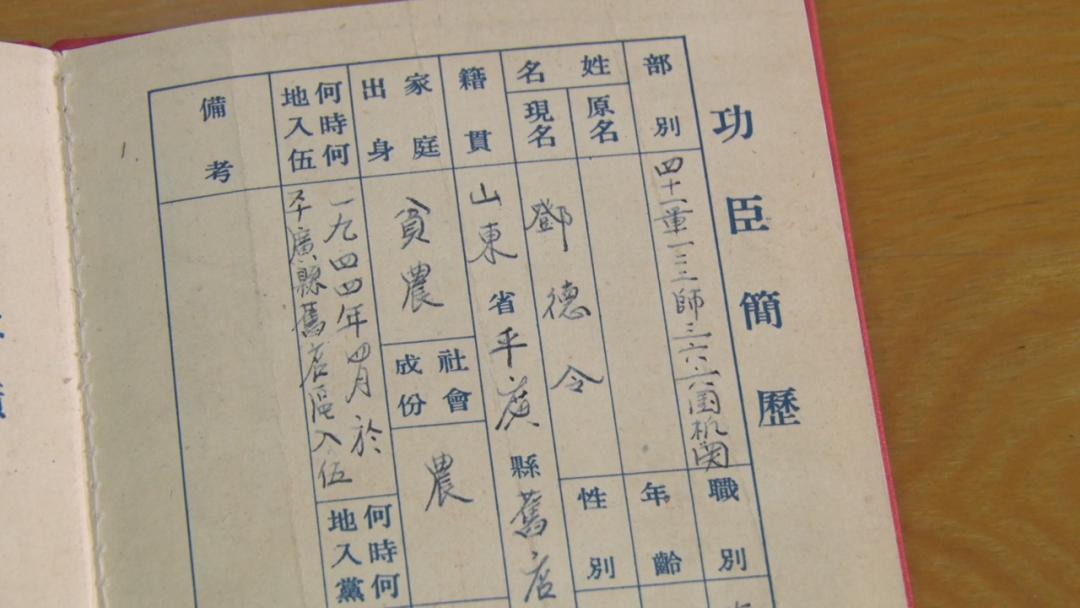 功臣簡歷
部別
四十一軍一二三師三六六团机関
職別
年齡
姓名
原名
現名
鄧德令
性別
籍貫
山東省平廣縣舊店
家庭出身
貧農
社會成份
農
何時何地入伍
一九四四年四月於
平廣縣舊店區入伍
何時何地入黨
備考